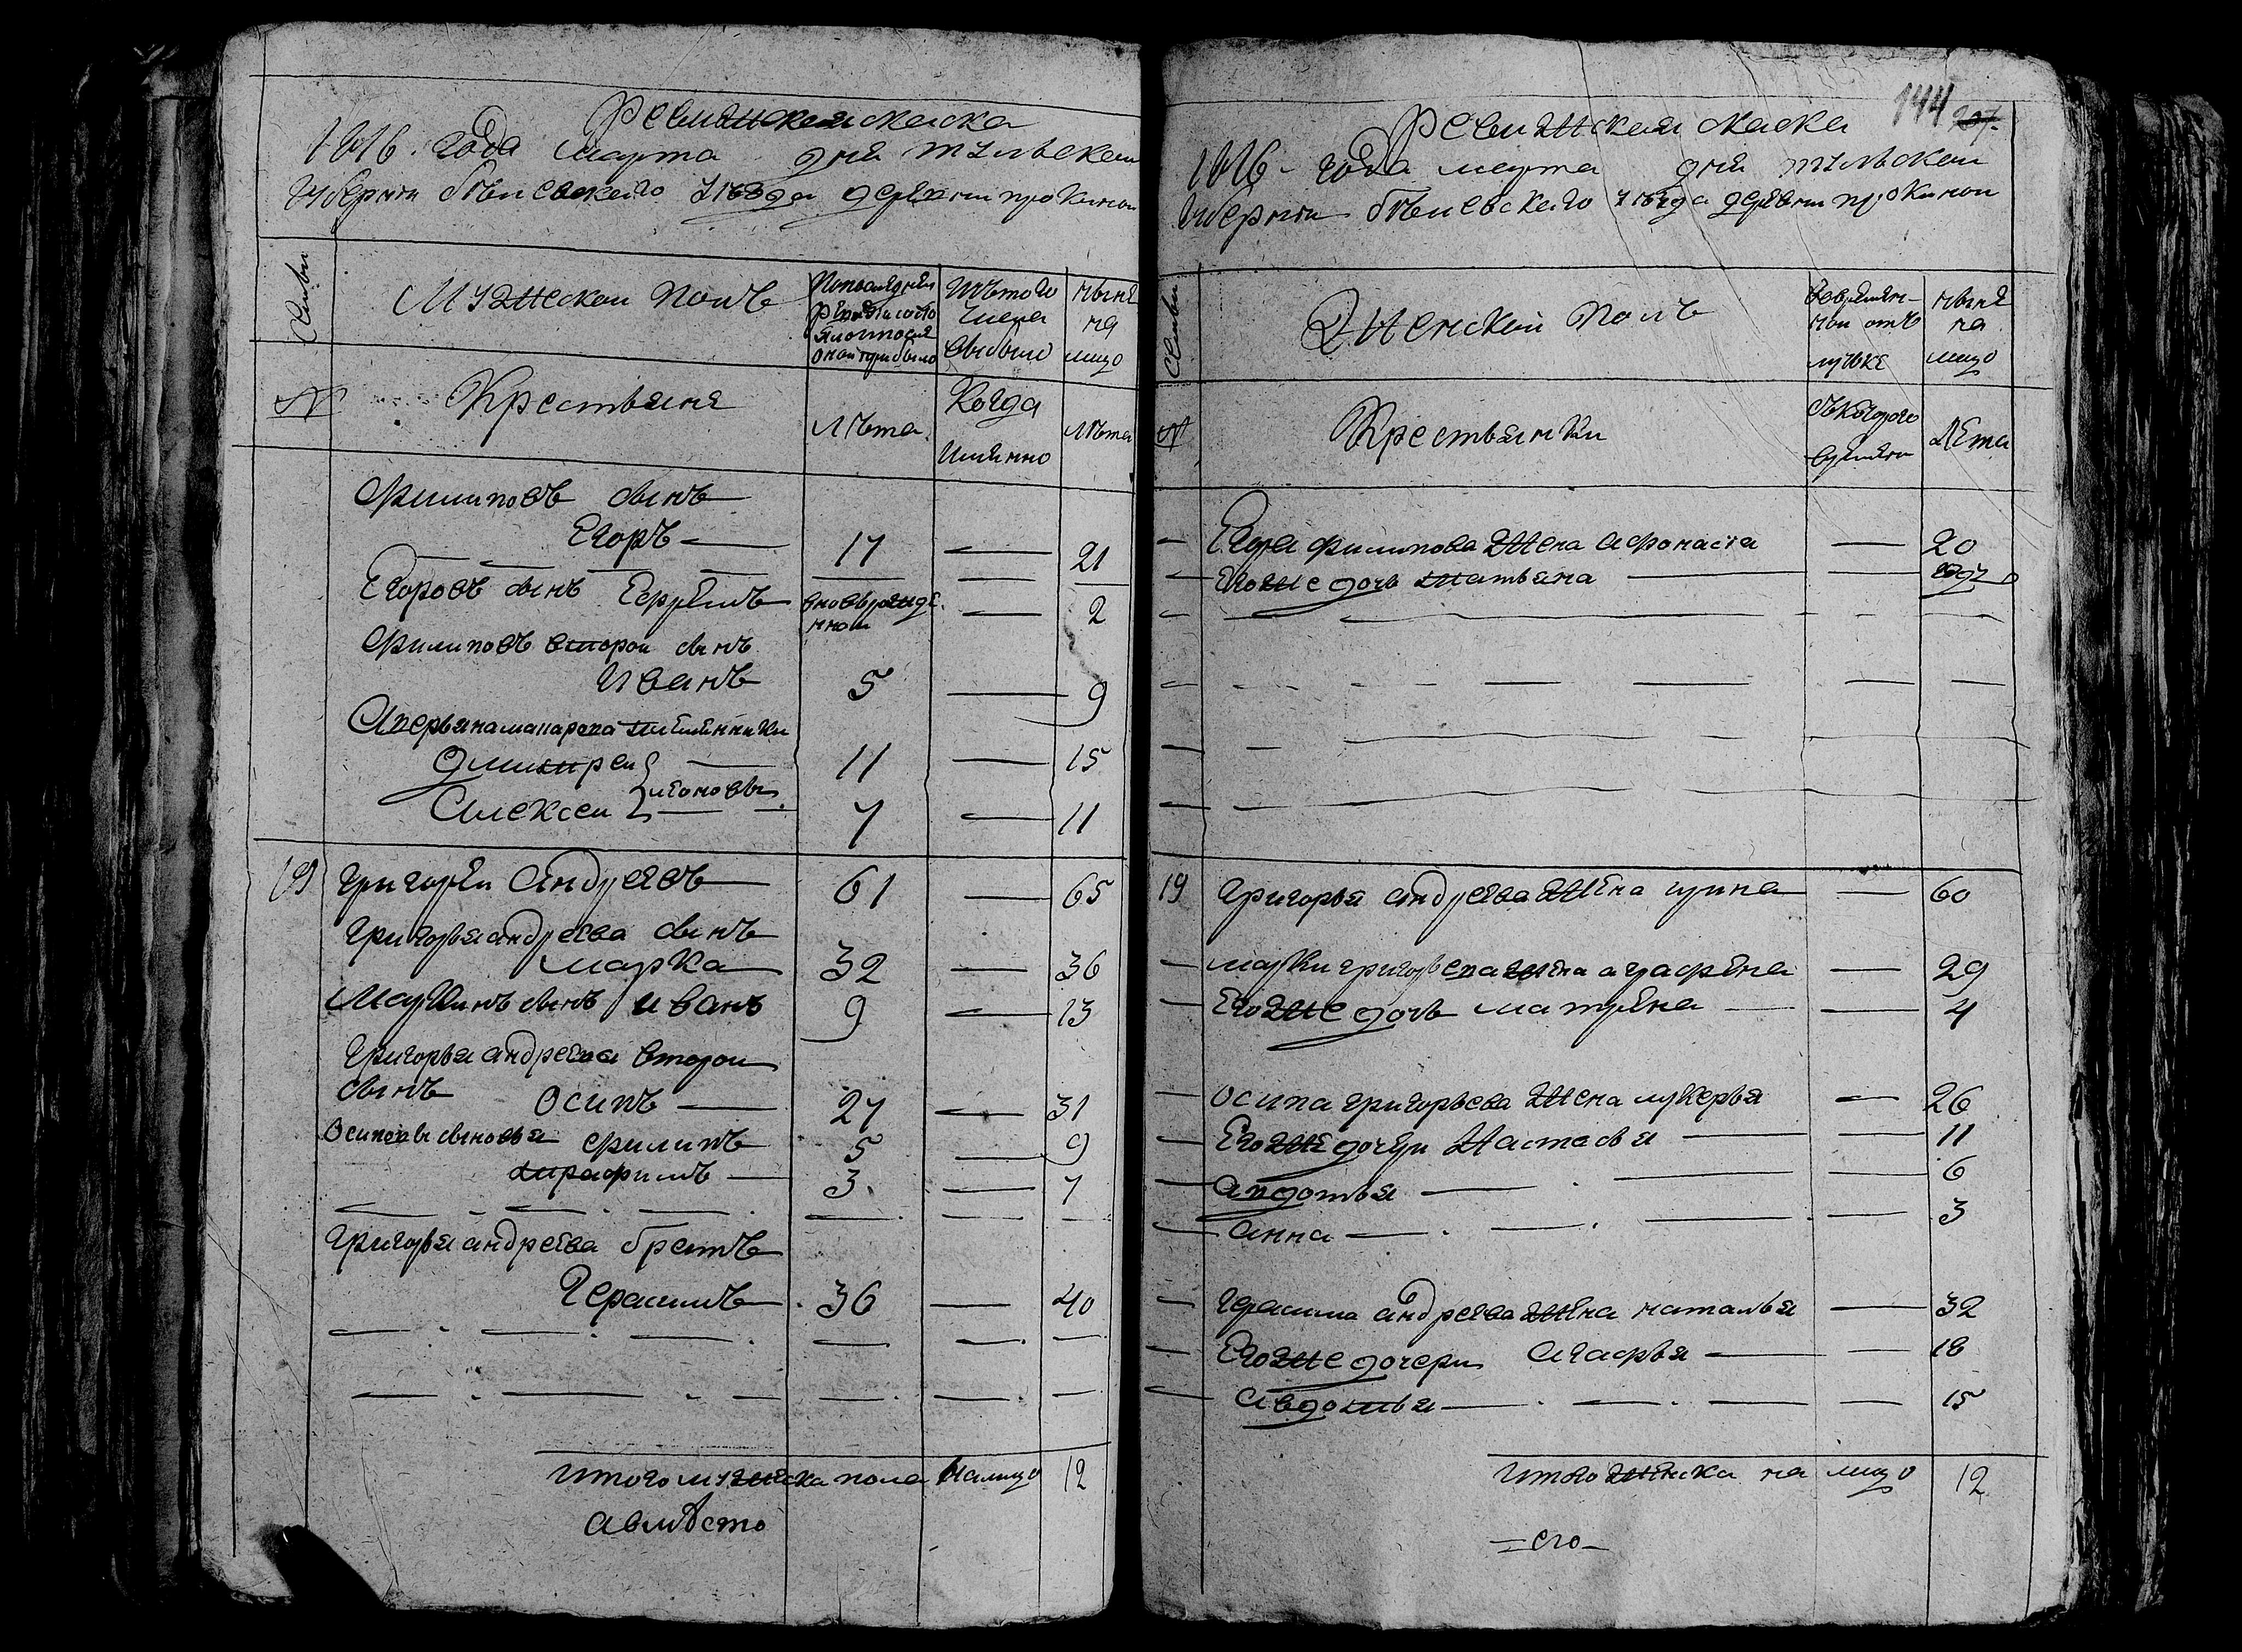 Ревижская скаска
1816 года марта дня тульской
губерни белевского уезда деревни прокиной
Семьи
Мужеской полъ
Попоследней ревизи состояло и после оной прибыло
Исътого числа выбыло
ныне на лицо
№
Крестьяня
лѣта
Когда имянно
лѣта
Филиповъ сынъ
Егоръ 17 21
Егоровъ сынъ Ефремъ вновьрожденной 2
Филиповъ второй сынъ
Иванъ 5 9
Аверьяна макарова племянники
Дмитрей 11 15
Алексей 7 11
19 Григорей Андреевъ 61 65
Григорья андреева сынъ
Марка 32 36
Маркинъ сынъ иванъ 9 13
Григорья андреева второй
сынъ Осипъ 27 31
Осиповы сыновья филипъ 5 9
трафимъ 3 7
Григорья андреева братъ
Герасимъ 36 40
Итого мужеска пола налицо 12
Авмѣсто
144
207.
Ревижская скаска
1816 года марта дня тульской
губерни белевского уезда деревни прокиной
Семьи
Женской полъ
Вовремянной отълучке
ныне на лицо
№
Крестьянки
Съкоторого времяни
Лета
Егора филипова жена афонасия 20
Егоже дочь татьяна
19 Григорья андреева жена ирина 60
марки григорьева жена аграфена 29
Егоже дочь матрена 4
осипа григорьева жена лукерья 26
Егоже дочери Настасья 11
авдотья 6
анна 3
Герасима андреева жена наталья 32
Егоже дочери Агафья 18
Авдотья 15
Итого женска на лицо 12